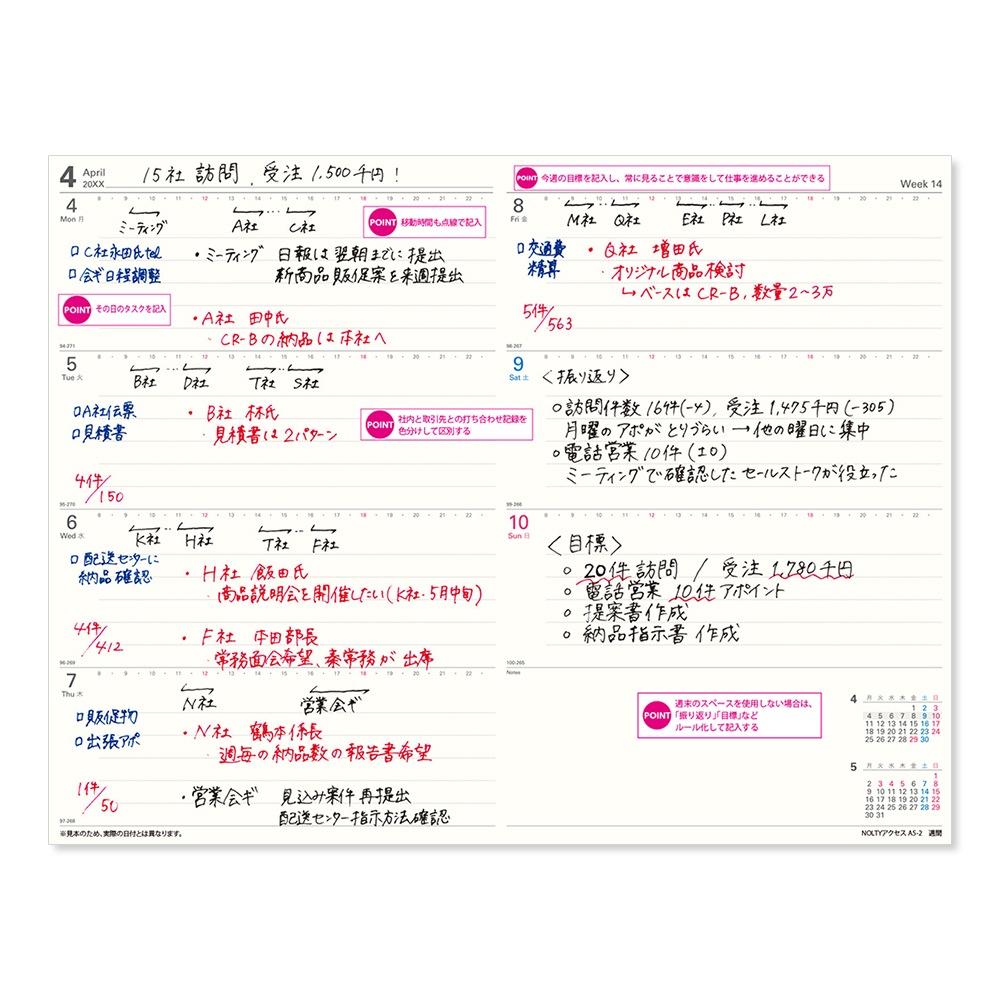 4 April 20XX 15社 訪問、受注1,500千円!
8 9 10 11 12 13 14 15 16 17 18 19 20 21 22
4 Mon 月
ミーティング A社 C社
POINT 移動時間も点線で記入
□ C社永田氏tel
□ 会ギ日程調整
・ミーティング 日報は翌朝までに提出
新商品販促案を来週提出
POINT その日のタスクを記入
・A社 田中氏
・CR-Bの納品は本社へ
94-271
8 9 10 11 12 13 14 15 16 17 18 19 20 21 22
5 Tue 火
B社 D社 T社 S社
□A社伝票
□見積書
・B社 林氏
・見積書は2パターン
POINT 社内と取引先との打ち合わせ記録を
色分けして区別する
4件/150
95-270
8 9 10 11 12 13 14 15 16 17 18 19 20 21 22
6 Wed 水
K社 H社 T社 F社
□ 配送センターに
納品確認
・H社 飯田氏
・商品説明会を開催したい(K社・5月中旬)
4件/412
・F社 本田部長
・常務面会希望、秦常務が出席
96-269
8 9 10 11 12 13 14 15 16 17 18 19 20 21 22
7 Thu 木
N社 営業会ギ
□販促物
□出張アポ
・N社 鶴本係長
・週毎の納品数の報告書希望
1件/50
・営業会ギ 見込み案件再提出
配送センター指示方法確認
97-268
※見本のため、実際の日付とは異なります。
POINT 今週の目標を記入し、常に見ることで意識をして仕事を進めることができる
Week 14
8 9 10 11 12 13 14 15 16 17 18 19 20 21 22
8 Fri 金
M社 Q社 E社 P社 L社
□交通費
精算
・Q社 増田氏
・オリジナル商品検討
↳ベースはCR-B、数量2〜3万
5件/563
98-267
8 9 10 11 12 13 14 15 16 17 18 19 20 21 22
9 Sat 土
<振り返り>
○訪問件数16件(-4)、受注1,475千円(-305)
月曜のアポがとりづらい→他の曜日に集中
○電話営業10件(±0)
ミーティングで確認したセールストークが役立った
99-266
8 9 10 11 12 13 14 15 16 17 18 19 20 21 22
10 Sun 日
<目標>
○ 20件訪問 / 受注1,780千円
○ 電話営業10件アポイント
○ 提案書作成
○ 納品指示書作成
100-265
Notes
POINT 週末のスペースを使用しない場合は、
「振り返り」「目標」など
ルール化して記入する
4 月 火 水 木 金 土 日
1 2 3
4 5 6 7 8 9 10
11 12 13 14 15 16 17
18 19 20 21 22 23 24
25 26 27 28 29 30
5 月 火 水 木 金 土 日
1
2 3 4 5 6 7 8
9 10 11 12 13 14 15
16 17 18 19 20 21 22
23 24 25 26 27 28 29
30 31
NOLTYアクセス A5-2 週間